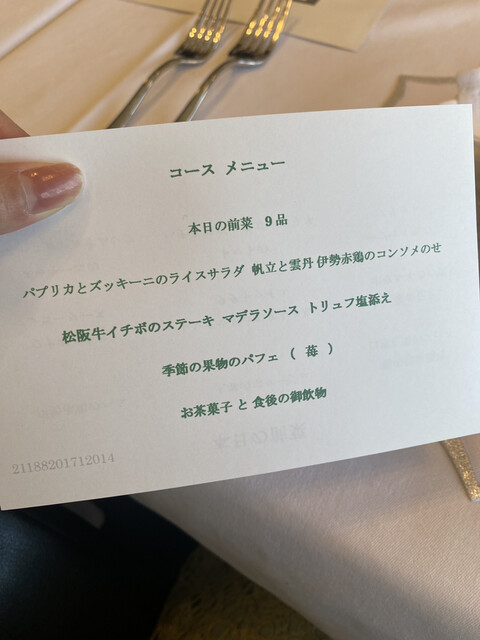 コース メニュー
本日の前菜 9品
パプリカとズッキーニのライスサラダ 帆立と雲丹 伊勢赤鶏のコンソメのせ
松阪牛イチボのステーキ マデラソース トリュフ塩添え
季節の果物のパフェ ( 苺 )
お茶菓子 と 食後の御飲物
21188201712014